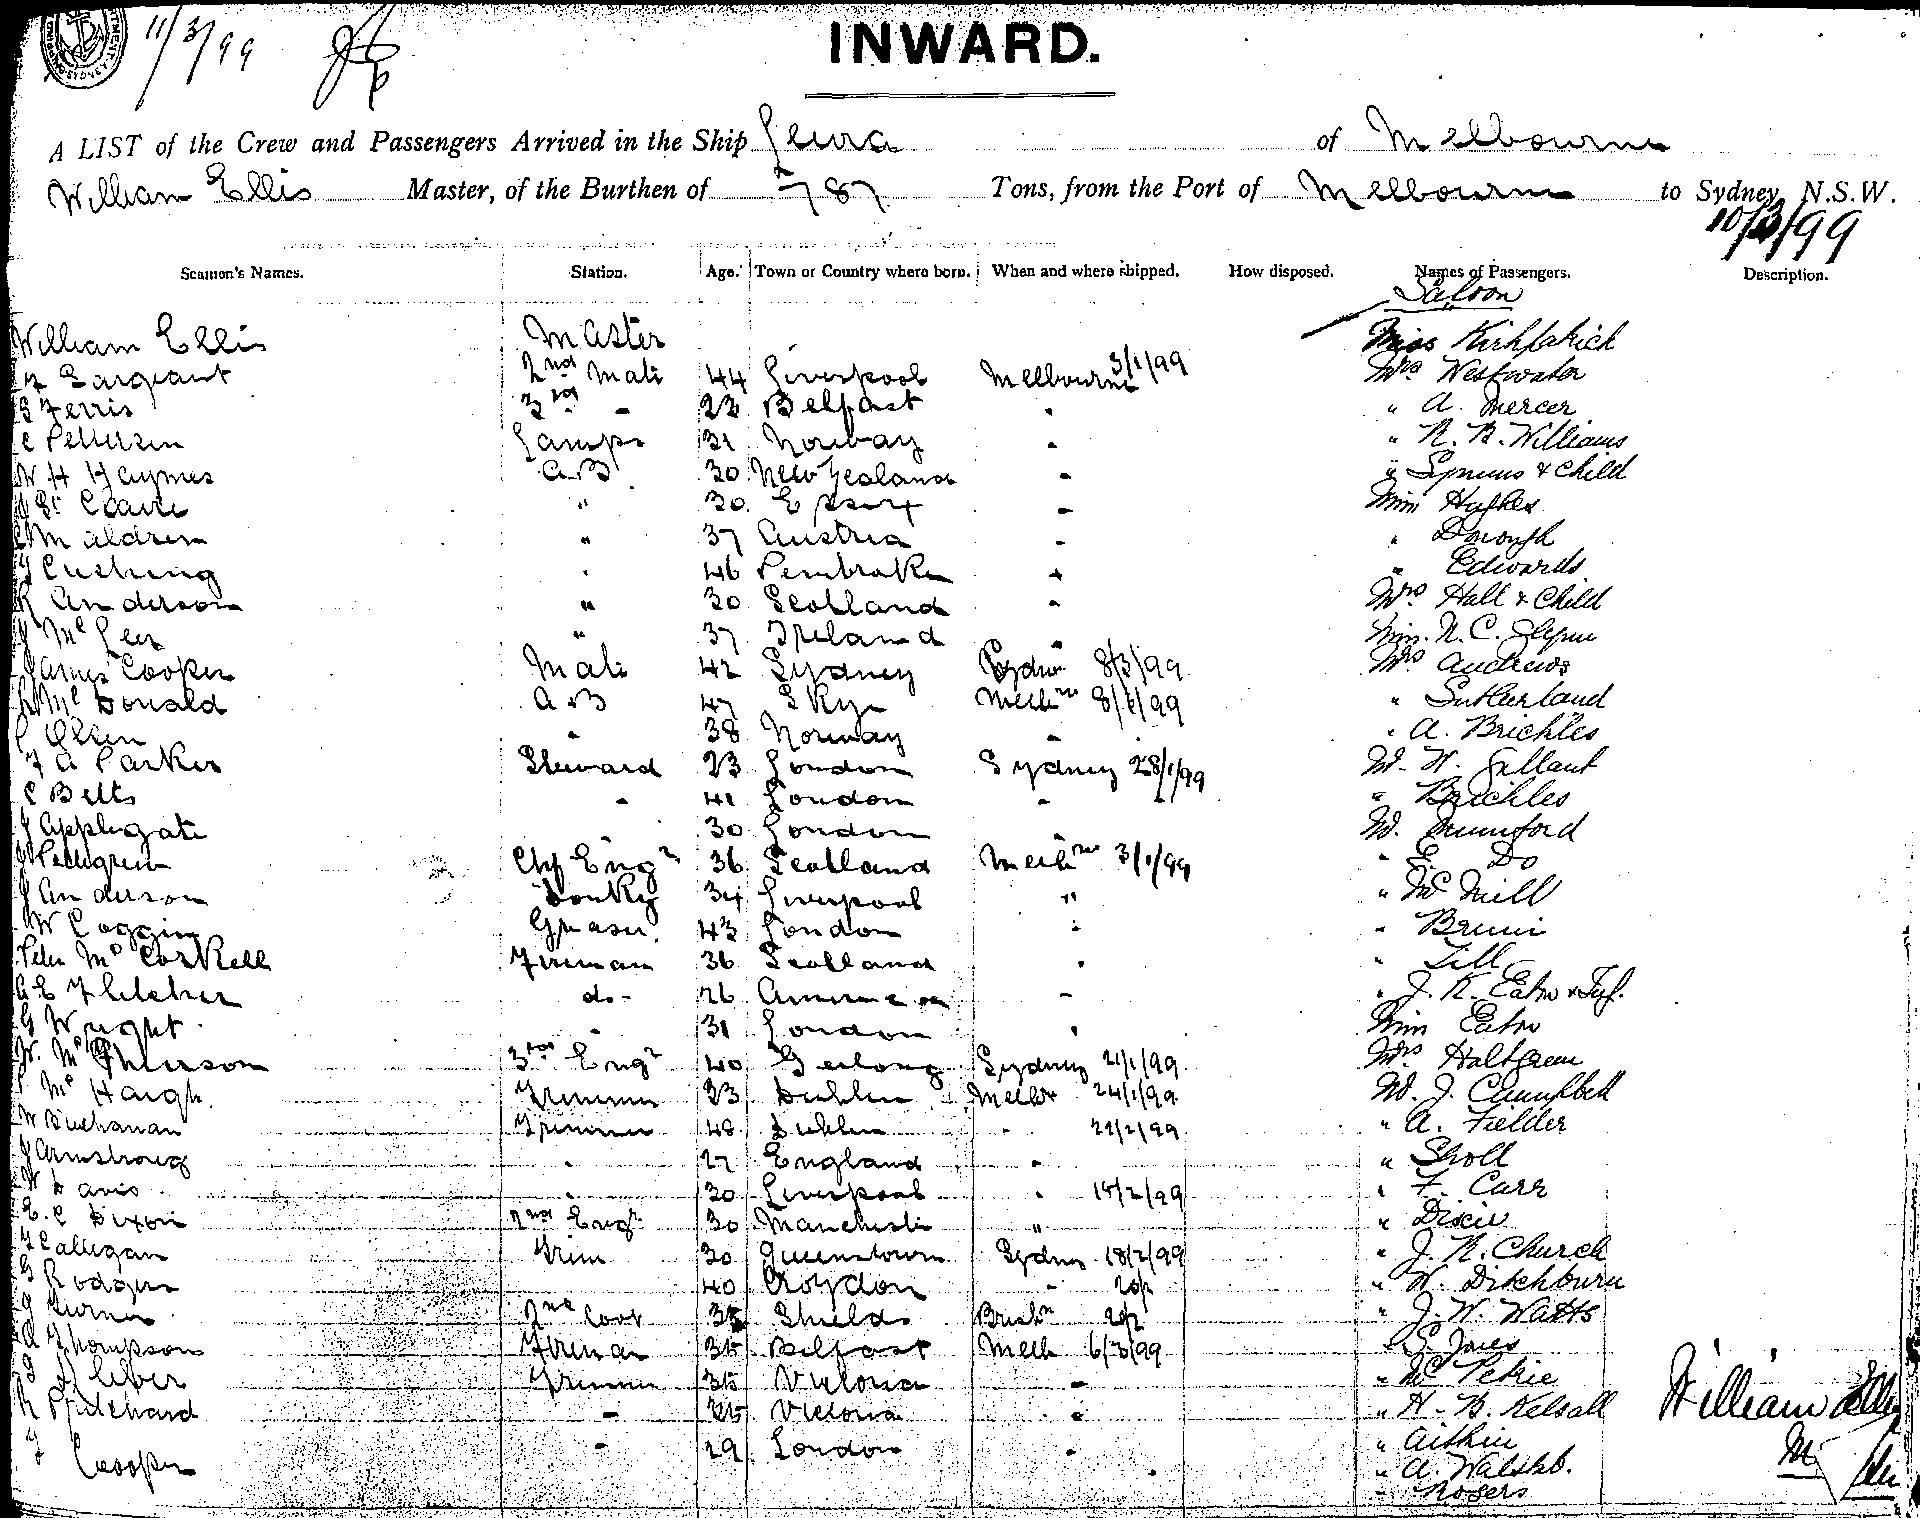 11/3/99
INWARD.
A LIST of the Crew and Passengers Arrived in the Ship Leura of Melbourne
William Ellis Master, of the Burthen of 787 Tons, from the Port of Melbourne to Sydney, N.S.W.
10/3/99
Seamen's Names. Station. Age. Town or Country where born. When and where shipped. How disposed. Names of Passengers. Description.
Saloon
William Ellis Master Miss Kirkpatrick
Sargeant 2nd Mate 44 Liverpool Melbourne 3/1/99 Mrs Westwater
Ferris 3rd - 22 Belfast " " A. Mercer
C Pettersen Lamps 31 Norway " " R. B. Williams
W H Haymes AB 30 New Zealand " " & Child
St Claire " 30 Essex " Miss Hughes
Maldren " 37 Austria " "
Cushing " 46 Pembroke " " Edwards
R Anderson " 30 Scotland " Mrs Hall & Child
J McLeer " 37 Ireland " Miss N. C. Flynn
James Cooper Mate 42 Sydney Sydney 8/3/99 Mrs Andrews
McDonald AB 47 Skye Melbne " Sutherland
Olsen " 38 Norway " " A. Brichles
F A Parker Steward 23 London Sydney 28/1/99 Mr W. Gallant
C Betts " 41 London " " Brichles
J Applegate 30 London " Mr. Mumford
Pettigrew Chf Engr 36 Scotland Melbne 3/1/99 " E. Do
J Anderson Donky 34 Liverpool " " McNeill
W Coggin Greaser 43 London "
Peter McCorkell Fireman 36 Scotland " " Till
A E Fletcher do - 26 American " " J. R. Eaton
G Wright " 31 London " Miss Eaton
W. McPherson 3rd Engr 40 Geelong Sydney 21/1/99 Mrs Holtgreen
McHaigh Trimmer 23 Dublin Melbe 24/1/99 Mr. J. Campbell
W Buchanan Trimmer 48 Dublin " 22/2/99 " A. Fielder
J Armstrong " 27 England " " Sholl
W Davis " 30 Liverpool " 15/2/99 " F. Carr
E. C Dixon 2nd Engr 30 Manchester "
J Calligan Trim 30 Queenstown Sydney 18/2/99 " J. R. Church
G Rodgers 40 Croydon " " W. Ditchburn
Turner 2nd Cook Shields Brisbn " J. W. Watts
A Thompson Fireman 35 Belfast Melb 6/3/99 " S. Jones
Trimmer 35 Victoria " " McPetrie
R Pritchard " 25 Victoria " " H. B. Kelsall
Cooper " 29 London " " Aitkin
" A.
" Rogers
William Ellis